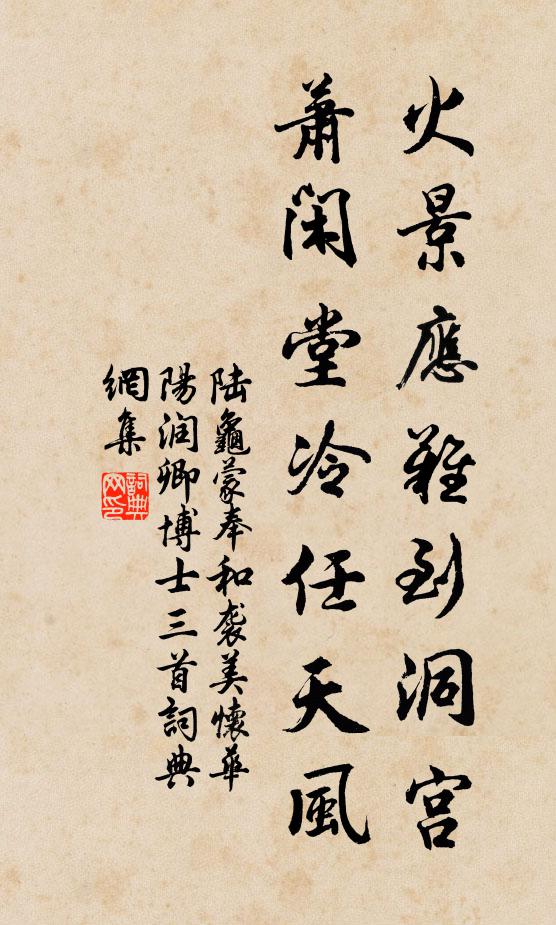 火景應難到洞宫
蕭閑堂冷任天風
陆龜蒙奉和袭美懷華
陽润卿博士三首詞典
網集
詞典
网印